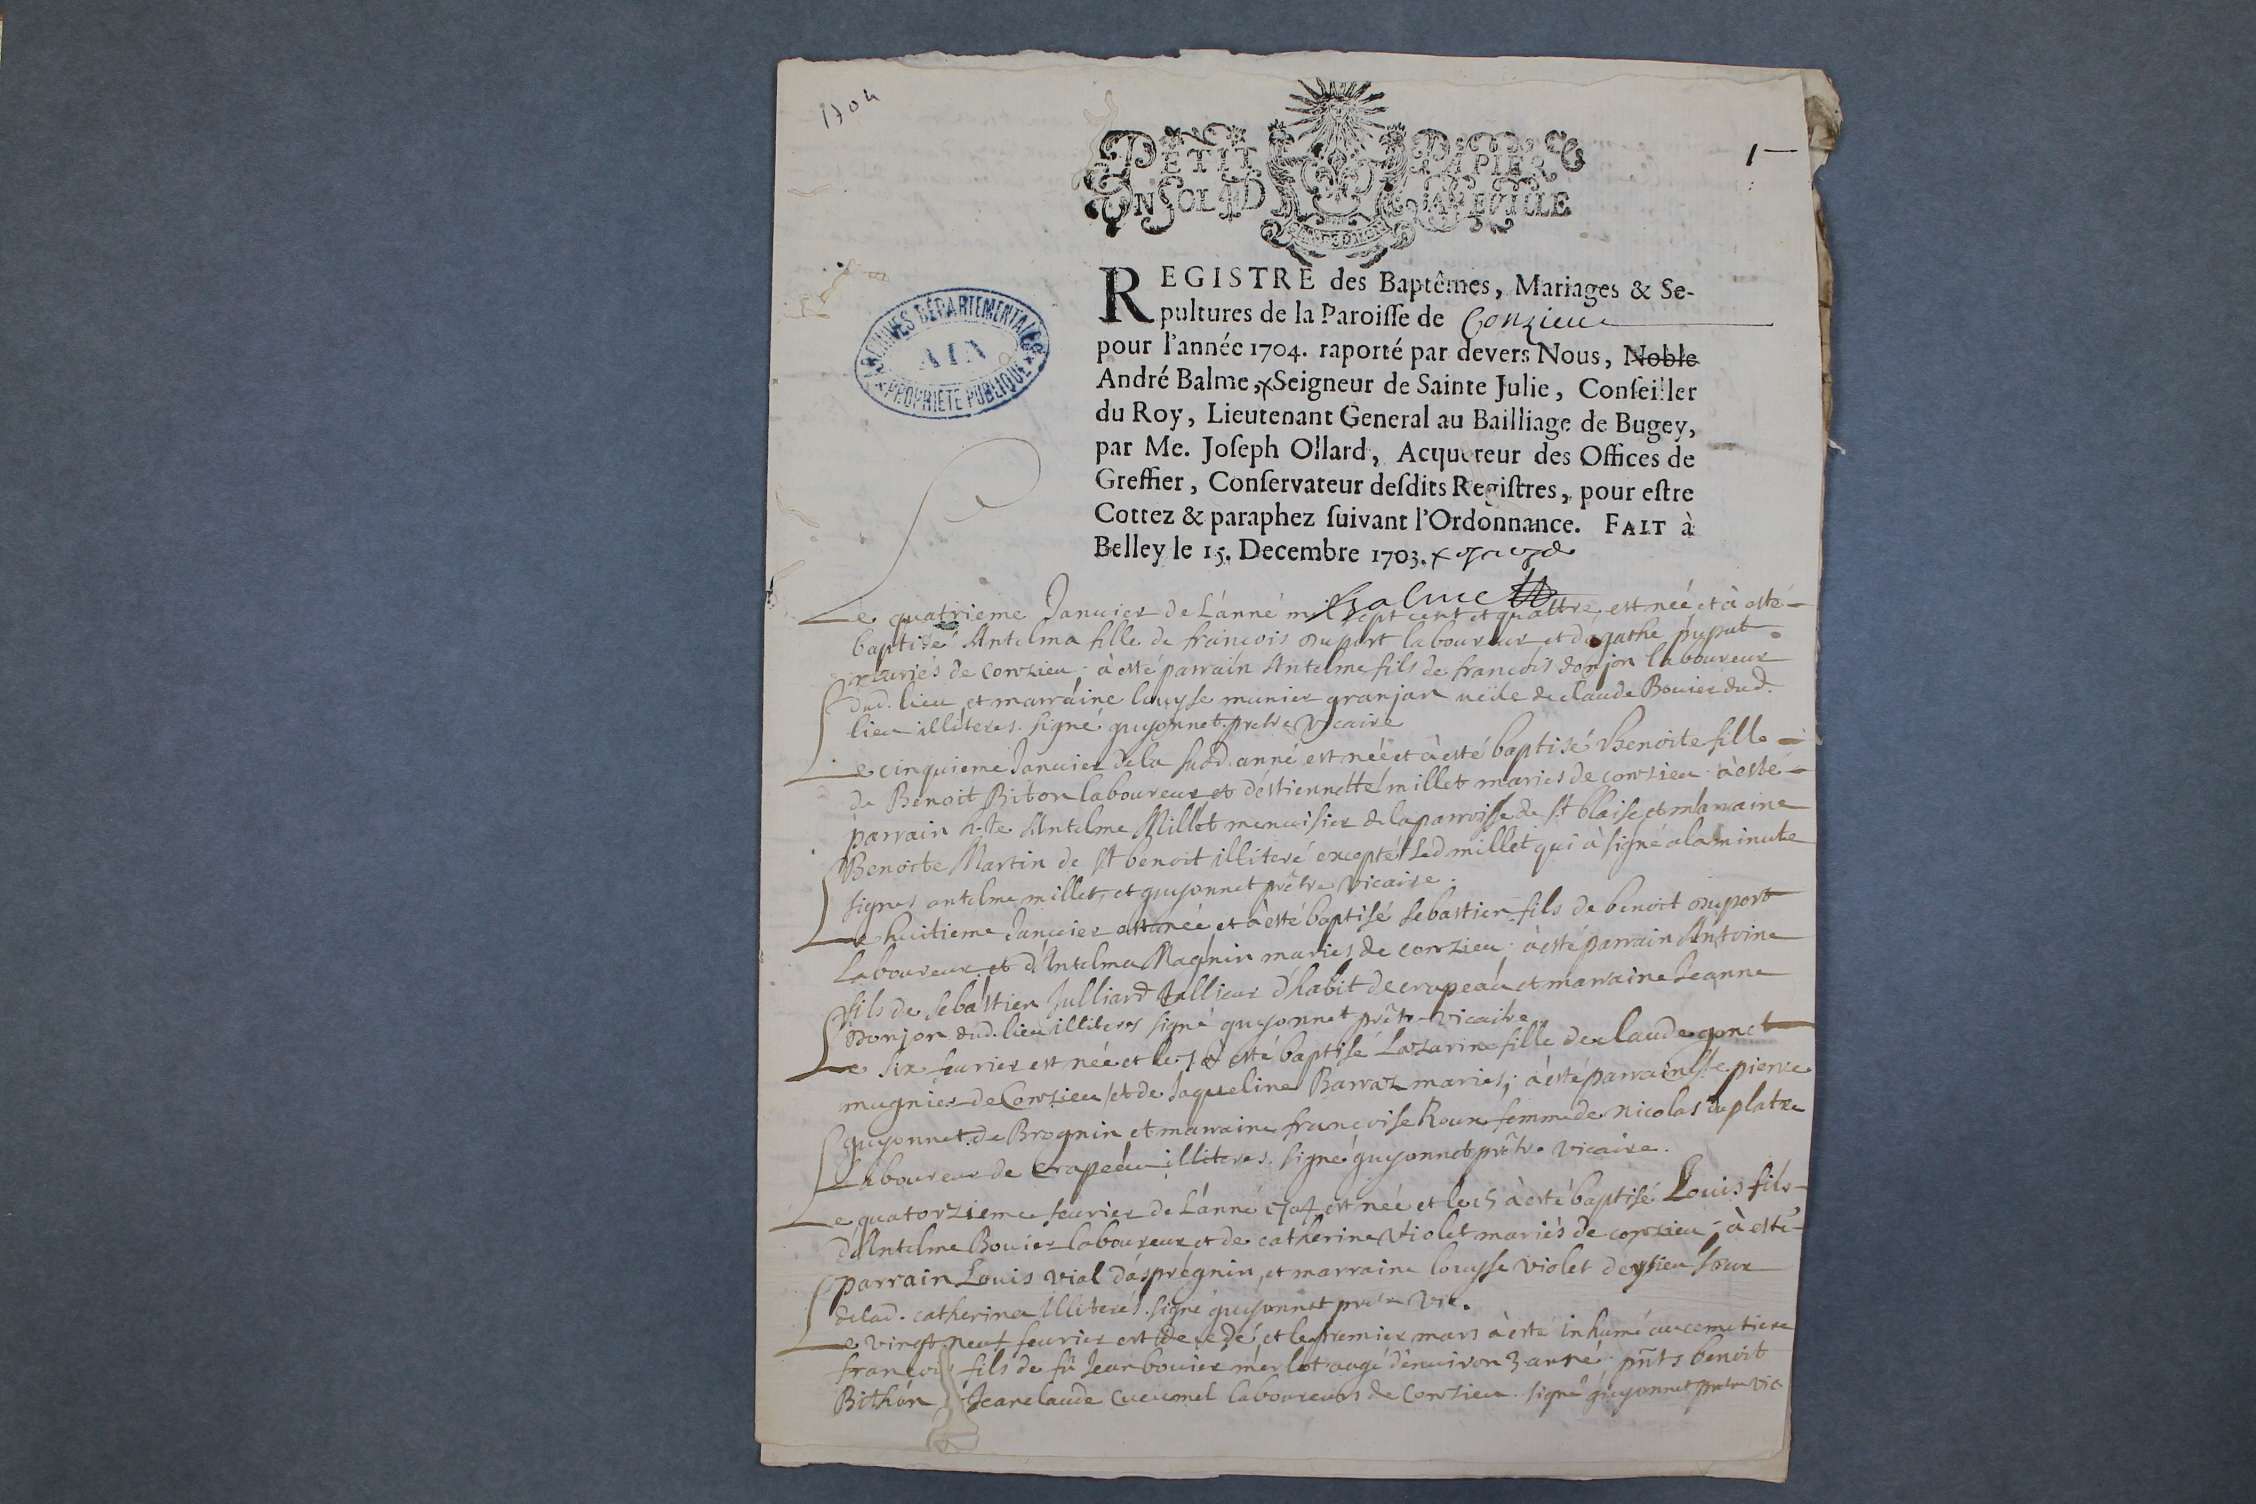 1704
1
PETIT PAPIER
UN SOL LA FEUILLE
REGISTRE des Baptêmes, Mariages & Se-
pultures de la Paroisse de Conzieu
pour l'année 1704. raporté par devers Nous, Noble
André Balme, x Seigneur de Sainte Julie, Conseiller
du Roy, Lieutenant General au Bailliage de Bugey,
par Me. Joseph Ollard, Acquereur des Offices de
Greffier, Conservateur desdits Registres, pour estre
Cottez & paraphez suivant l'Ordonnance. FAIT à
Belley le 15. Decembre 1703. x
ARCHIVES DÉPARTEMENTALES
AIN
PROPRIÉTÉ PUBLIQUE
Balme
Le quatrieme Januier de L'anné mil sept cent et quattre est née et à esté
baptisé Antelma fille de françois duport laboureur et dagathe pupat
mariés de conzieu; à esté parrain Antelme fils de françois donjon laboureur
dud. lieu et marraine louyse munier granjan de claude Bouier dud.
lieu illiteres. signé guyonnet prêtre vicaire
Le cinquieme Januier de la susd. anné est née et à esté baptisé Benoite fille
de Benoit Biton laboureur et d'éstiennette millet mariés de conzieu à esté
parrain Antelme Millet menuisier de la parroisse de st blaise et marraine
Benoite Martin de st benoit illiteré excepté led millet qui à signé a la minute
signes antelme millet, et guyonnet prêtre vicaire.
Le huitieme Januier est née et à esté baptisé sebastien fils de benoit duport
laboureur et d'Antelma Magnin mariés de conzieu; à esté parrain Antoine
fils de sebastien Julliard tallieur d'habit de crapeau et marraine Jeanne
Donjon dud. lieu illiteres signé guyonnet prêtre vicaire
Le six feurier est née et le 7 à esté baptisé Lazarine fille de claude gonet
mugnier de Conzieu et de Jaqueline Barraz mariés; à esté parrain pierre
guyonnet de Brognin et marraine françoise Roux femme de nicolas du platre
laboureur de Crapeau illiteres. signé guyonnet prêtre vicaire.
Le quatorzieme feurier de L'anné 1704 est née et le 15 à esté baptisé Louis fils
d'Antelme Bouier laboureur et de catherine Violet mariés de conzieu; à esté
parrain Louis vial d'asprégnin, et marraine louysse violet d'eysieu sœur
de lad. catherine illiterés. signé guyonnet prêtre vic.
Le vingt neuf feurier est decedé et le premier mars à esté inhumé au cemetiere
françois fils de fû Jean bouier merlot aagé d'enuiron 3 anné pñts benoit
Bithon Jean claude Cucumel laboureurs de Conzieu. signé guyonnet prêtre vic